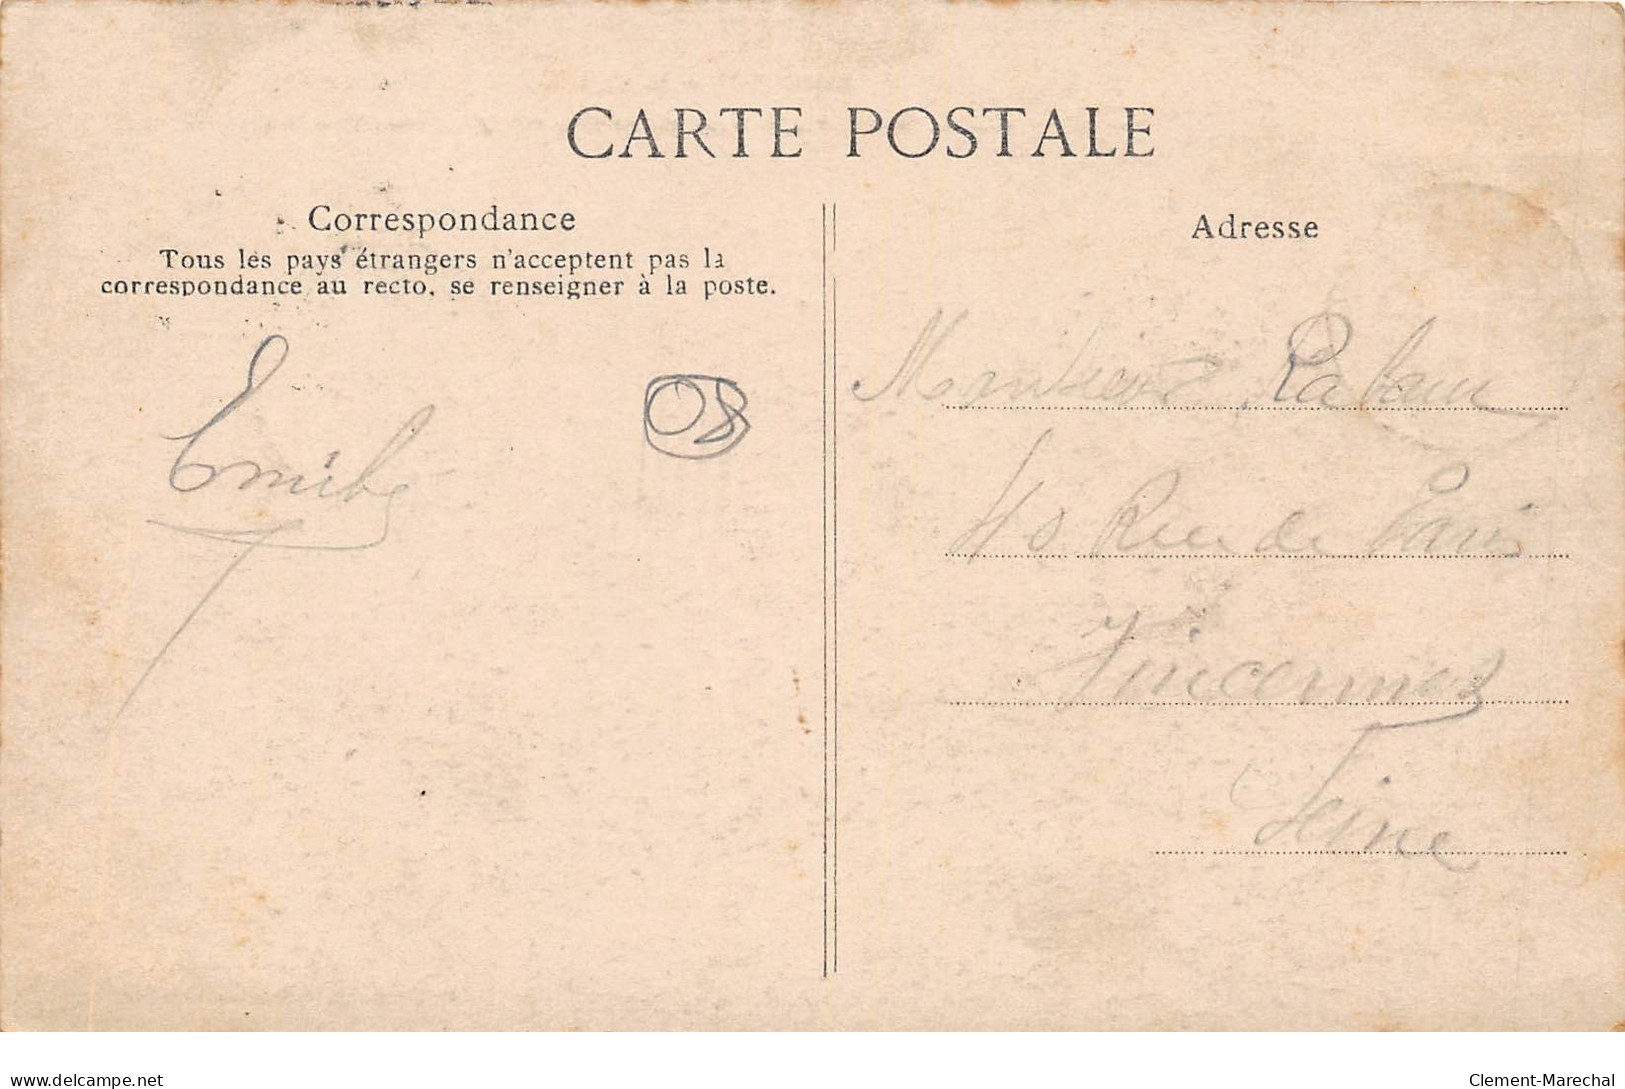 CARTE POSTALE
Correspondance
Tous les pays étrangers n'acceptent pas la
correspondance au recto, se renseigner à la poste.
Adresse
08
Monsieur
40 Rue de Paris
Vincennes
Seine
delcampe.net
Clement-Marechal